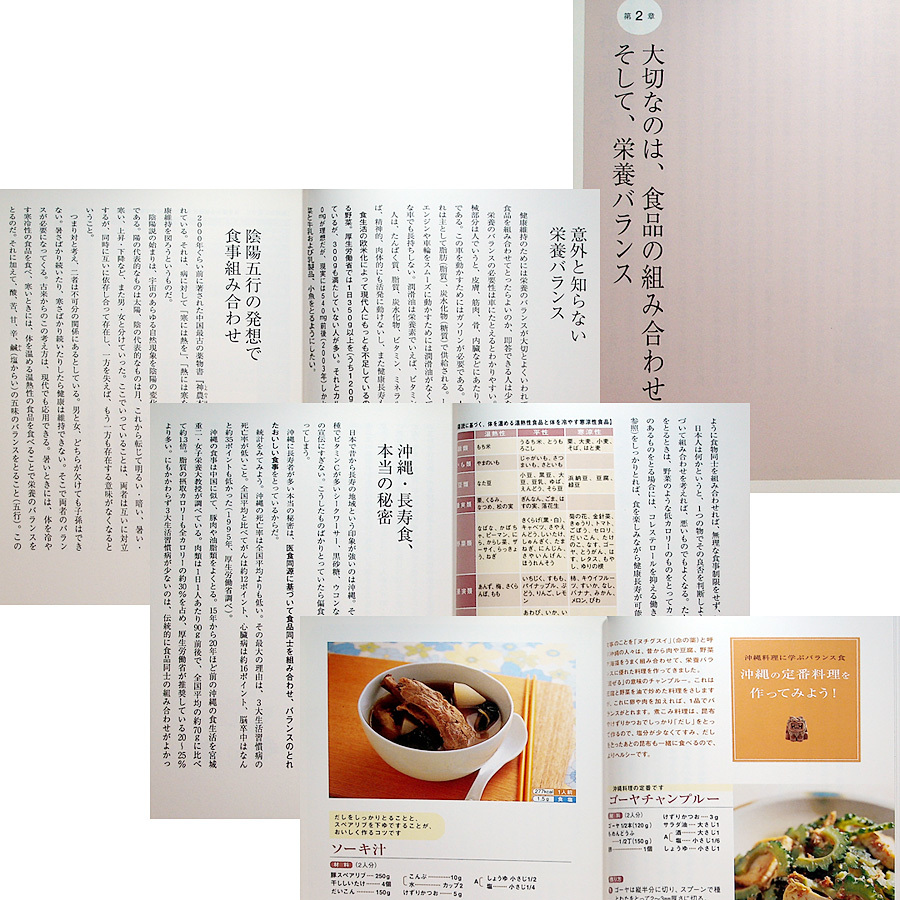 第2章
大切なのは、食品の組み合わせ
そして、栄養バランス
意外と知らない
栄養バランス
健康維持のためには栄養のバランスが大切とよくいわれ
食品を組み合わせてとったらよいのか、即答できる人は少な
栄養のバランスの必要性は車にたとえるとわかりやすい。
械部分は人でいうと、皮膚、筋肉、骨、内臓などにあたり、
である。この車を動かすためにはガソリンが必要である。
れは主として脂肪(脂質)、炭水化物(糖質)で供給される。
エンジンや車輪をスムーズに動かすためには潤滑油がなくて
な車でも長持ちしない。潤滑油は栄養素でいえば、ビタミン
人は、たんぱく質、脂質、炭水化物、ビタミン、ミネラル
ば、精神的、肉体的にも活発に動けないし、また健康長寿も
食生活の欧米化によって現代人にもっとも不足しているの
る野菜。厚生労働省では1日350g以上を(うち120g
ているが、300gも満たしていない人が多い。それとカル
0㎎が理想だが、現実には540㎎前後(2003年)しか
菜と牛乳および乳製品、小魚をとるようにしたい。
陰陽五行の発想で
食事組み合わせ
2000年ぐらい前に著された中国最古の薬物書『神農本
れている。それは、病に対して「寒には熱を」、「熱には寒を
康維持を図ろうというものだ。
陰陽説の始まりは、宇宙のあらゆる自然現象を陰陽の変化
である。陽の代表的なものは太陽、陰の代表的なものは月。これから転じて明るい・暗い、暑い・
寒い、上昇・下降など、また男・女と分けていった。ここでいっていることは、両者は互いに対立
するが、同時に互いに依存し合って存在し、一方を失えば、もう一方も存在する意味がなくなると
いうこと。
つまり対と考え、二者は不可分の関係にあるとしている。男と女、どちらが欠けても子孫はでき
ない。暑さばかり続いたり、寒さばかり続いたりしたら健康は維持できない。そこで両者のバラン
スが必要になってくる。古来からのこの考え方は、現代でも応用できる。暑いときには、体を冷や
す寒冷性の食品を食べ、寒いときには、体を温める温熱性の食品を食べることで栄養のバランスを
とるのだ。それに加えて、酸、苦、甘、辛、鹹(塩からい)の五味のバランスをとること(五行)。この
ように食物同士を組み合わせれば、無理な食事制限をせず、
日本人は何かというと、一つの物でその良否を判断しよ
づいて組み合わせを考えれば、悪いものでもよくなる。た
をとるときは、野菜のような低カロリーのものをとってバ
のあるものをとる場合には、コレステロールを抑える働き
参照)をしっかりとれば、食を楽しみながら健康長寿が可能
説に基づく、体を温める温熱性食品と体を冷やす寒涼性食品】
温熱性 平性 寒涼性
もち米 うるち米、とうもろこし 粟、大麦、小麦、そば、はと麦
やまのいも じゃがいも、さつまいも、さといも
なた豆 小豆、黒豆、大豆、豆乳、ゆば、えんどう、そら豆 浜納豆、豆腐、緑豆
栗、くるみ、まつめ、松の実 ぎんなん、ごま、はすの実、落花生
沖縄・長寿食、
本当の秘密
日本で昔から長寿の地域という印象が強いのは沖縄。そ
種でビタミンCが多いシークワーサー、黒砂糖、ウコンな
の宣伝にすぎない。こうしたものばかりとっていたら偏食
ってしまう。
沖縄に長寿者が多い本当の秘密は、医食同源に基づいて食品同士を組み合わせ、バランスのとれ
たおいしい食事をとっているからだ。
統計をみてみよう。沖縄の死亡率は全国平均よりも低い。その最大の理由は、3大生活習慣病の
死亡率が低いこと。全国平均と比べてがんは約12ポイント、心臓病は約16ポイント、脳卒中はなん
と約35ポイントも低かった(1995年、厚生労働省調べ)。
沖縄の食事は中国に似て、豚肉や油脂類をよくとる。15年から20年ほど前の沖縄の食生活を宮城
重二・女子栄養大教授が調べている。肉類は1日1人あたり90g前後で、全国平均の約70gに比べ
て約1.3倍。脂質の摂取カロリーも全カロリーの約30%を占め、厚生労働省が推奨している20~25%
より多い。にもかかわらず3大生活習慣病が少ないのは、伝統的に食品同士の組み合わせがよかっ
277kcal 1人前
1.5g 食塩
だしをしっかりとることと、
スペアリブを下ゆですることが、
おいしく作るコツです
ソーキ汁
材料 (2人分)
豚スペアリブ……250g
干ししいたけ……4個
だいこん……150g
こんぶ……10g
水……カップ2
けずりかつお……5g
A しょうゆ 小さじ1/2
塩……小さじ1/4
事のことを「ヌチグスイ」(命の薬)と呼
沖縄の人々は、昔から肉や豆腐、野菜
海藻をうまく組み合わせて、栄養バラ
に優れた料理を作ってきました。
ぜる」の意味のチャンプルー。これは
腐と野菜を油で炒めた料理をさします
。これに卵や肉を加えれば、1品でバ
ンスがとれます。煮こみ料理は、昆布
やけずりかつおでしっかり「だし」をとっ
て作るので、塩分が少なくてすみ、だし
をとったあとの昆布も一緒に食べるので、
よりヘルシーです。
沖縄料理に学ぶバランス食
沖縄の定番料理を
作ってみよう!
沖縄料理の定番です
ゴーヤチャンプルー
材料 (2人分)
ゴーヤ1/2本(120g)
もめんどうふ
……1/2丁(150g)
卵……1個
けずりかつお……3g
サラダ油……大さじ1
A 酒……大さじ1
塩……小さじ1/6
しょうゆ 小さじ1
作り方
1 ゴーヤは縦半分に切り、スプーンで種